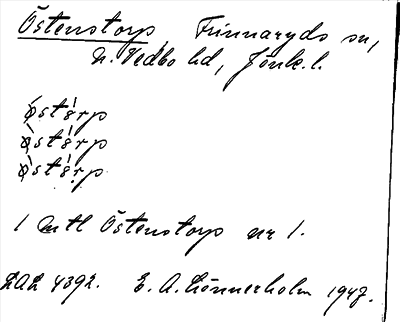 Östenstorp, Frinnaryds sn,
N. Vedbo hd, Jönk. l.
østørp
østørp
østørp
1 mtl Östenstorp nr 1.
LAL 4392. E. A. Lönnerholm 1947.